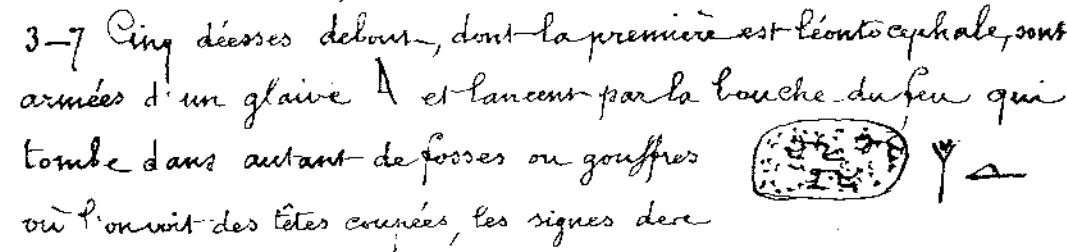 3–7 Cinq déesses debout, dont la première est léontocéphale, sont
armées d'un glaive et lancent par la bouche du feu qui
tombe dans autant de fosses ou gouffres
où l'on voit des têtes coupées, les signes de